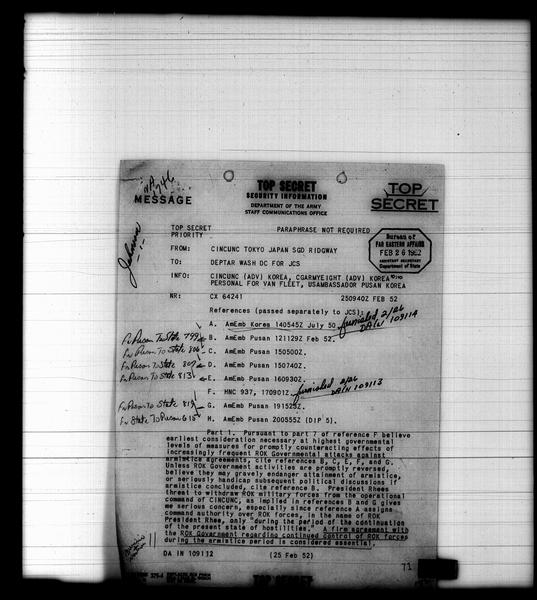 MESSAGE
TOP SECRET
SECURITY INFORMATION
DEPARTMENT OF THE ARMY
STAFF COMMUNICATIONS OFFICE
TOP
SECRET
TOP SECRET
PRIORITY
PARAPHRASE NOT REQUIRED
Bureau of
FAR EASTERN AFFAIRS
FEB 26 1952
ASSISTANT SECRETARY
Department of State
FROM: CINCUNC TOKYO JAPAN SGD RIDGWAY
TO: DEPTAR WASH DC FOR JCS
INFO: CINCUNC (ADV) KOREA, CGARMYEIGHT (ADV) KOREA
PERSONAL FOR VAN FLEET, USAMBASSADOR PUSAN KOREA
NR: CX 64241 250940Z FEB 52
References (passed separately to JCS):
A. AmEmb Korea 140545Z July 50 furnished 2/26
DA IN 109114
Fm Pusan To State 799 B. AmEmb Pusan 121129Z Feb 52.
Fm Pusan To State 806 C. AmEmb Pusan 150500Z.
Fm Pusan To State 807 D. AmEmb Pusan 150740Z.
Fm Pusan To State 813 E. AmEmb Pusan 160930Z.
F. HNC 937, 170901Z furnished 2/26
DA IN 109113
Fm Pusan To State 819 G. AmEmb Pusan 191525Z.
Fm State To Pusan 615 H. AmEmb Pusan 200555Z (DIP 5).
Part 1. Pursuant to part 7 of reference F believe
earliest consideration necessary at highest governmental
levels of measures for promptly counteracting effects of
increasingly frequent ROK Governmental attacks against
armistice agreements, cite references B, C, E, F, and G.
Unless ROK Government activities are promptly reversed,
believe they may gravely endanger attainment of armistice,
or seriously handicap subsequent political discussions if
armistice concluded, cite reference B. President Rhees
threat to withdraw ROK military forces from the operational
command of CINCUNC, as implied in references B and G gives
me serious concern, especially since reference A assigns
command authority over ROK forces, in the name of ROK
President Rhee, only "during the period of the continuation
of the present state of hostilities." A firm agreement with
the ROK Government regarding continued control of ROK forces
during the armistice period is considered essential.
DA IN 109132 (25 Feb 52)
71
TOP SECRET